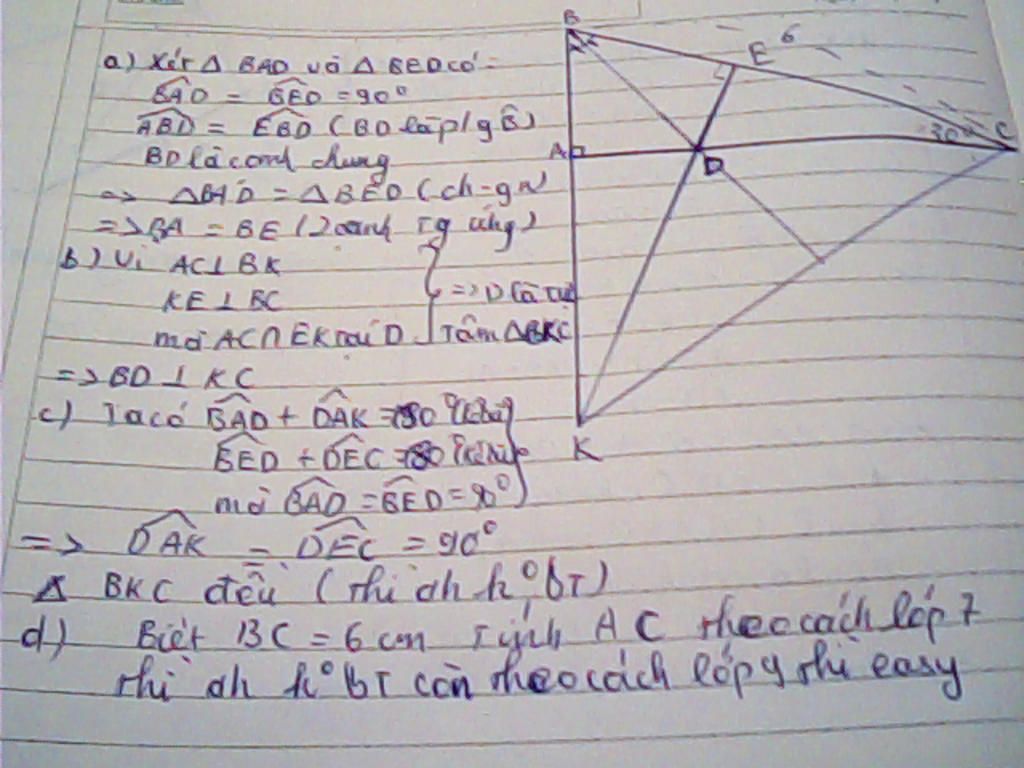 a) Xét Δ BAD và Δ BED có:
BAD = BED = 90°
ABD = EBD (BD là p/g B)
BD là cạnh chung
=> ΔBAD = ΔBED (ch-gn)
=> BA = BE (2 cạnh Tg ứng)
b) Vì AC⊥BK
KE⊥BC
mà AC∩EK tại D
=> D là
Tâm ΔBKC
=> BD ⊥ KC
c) Ta có BAD + DAK = 180°
BED + DEC = 180°
mà BAD = BED = 90°
=> DAK = DEC = 90°
Δ BKC đều (thì ah k° bT)
d) Biết BC = 6 cm Tính AC theo cách lớp 7
thì ah k° bT còn theo cách lớp 9 thì easy
B
E
6
A
D
30°
C
K